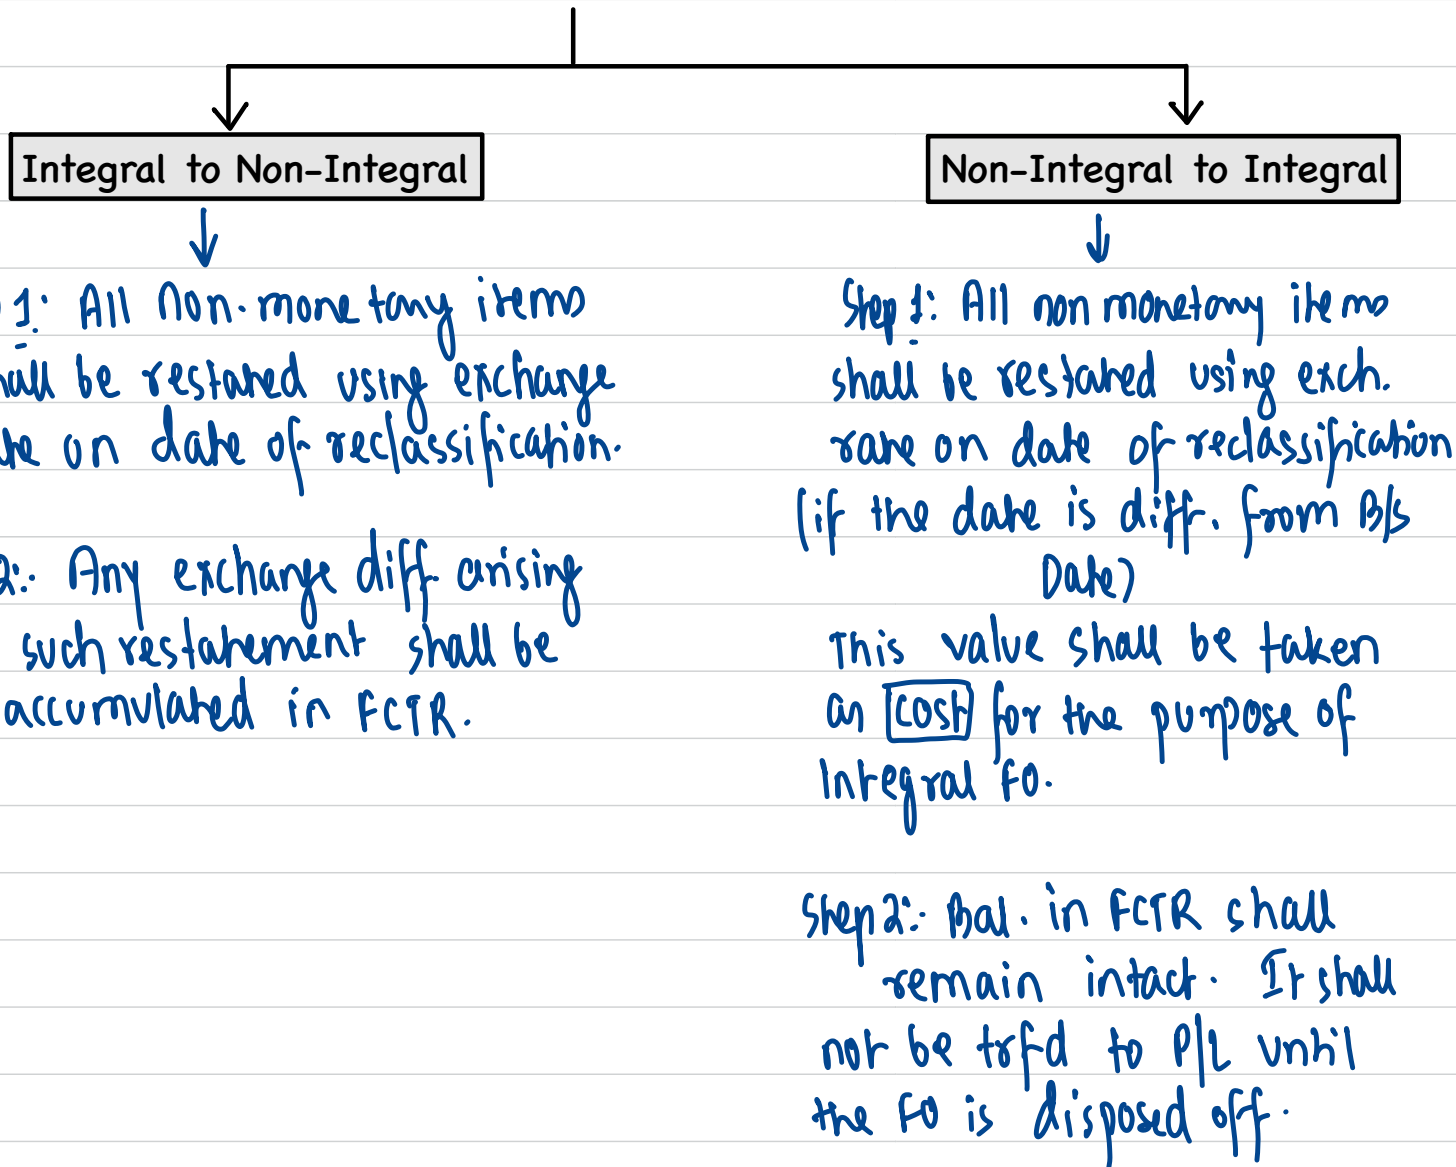 Integral to Non-Integral
1: All Non-monetary items
shall be restated using exchange
rate on date of reclassification.
2:- Any exchange diff. arising
such restatement shall be
accumulated in FCTR.
Non-Integral to Integral
Step 1: All non monetary items
shall be restated using exch.
rate on date of reclassification
(if the date is diff. from B/s
Date)
This value shall be taken
as cost for the purpose of
Integral FO.
Step 2:- Bal. in FCTR shall
remain intact. It shall
not be trfd to P/L until
the FO is disposed off.